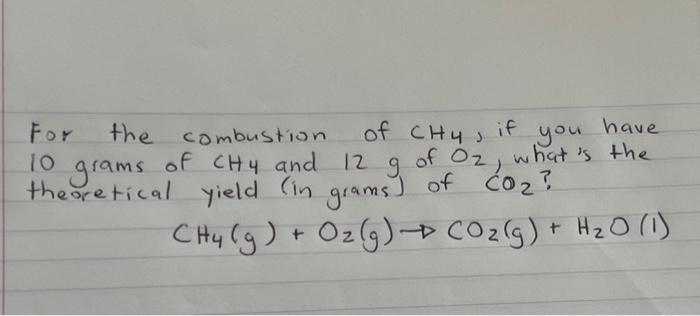 For the combustion of CH4, if you have
10 grams of CH4 and 12 g of O2, what's the
theoretical yield (in grams) of CO2?
CH4(g) + O2(g) → CO2(g) + H2O(l)